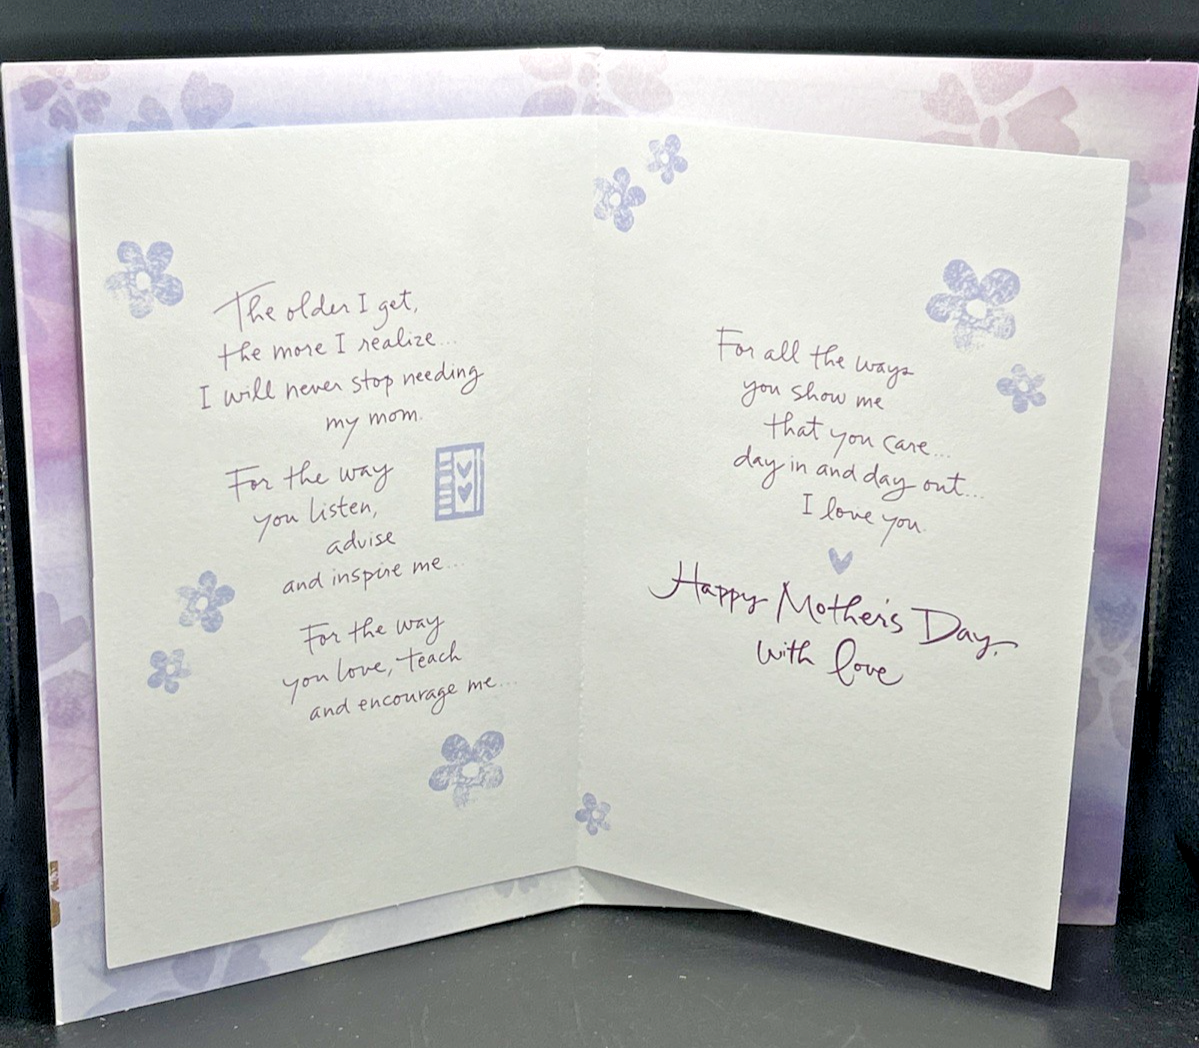 The older I get,
the more I realize...
I will never stop needing
my mom.
For the way
you listen,
advise
and inspire me...
For the way
you love, teach
and encourage me...
For all the ways
you show me
that you care...
day in and day out...
I love you.
Happy Mother's Day,
with love